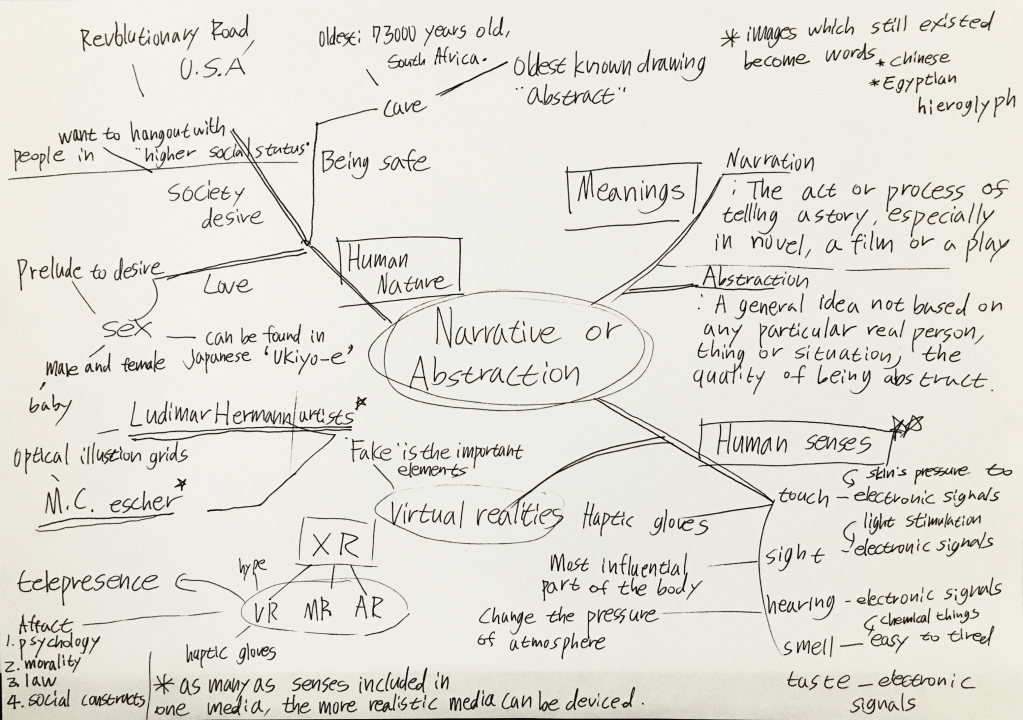 Revolutionary Road,
U.S.A
want to hangout with
people in "higher social status"
Society
desire
oldest: 73000 years old,
South Africa.
cave
Oldest known drawing
"abstract"
Being safe
* images which still existed
become words
* Chinese
* Egyptian
hieroglyph
Human
Nature
Prelude to desire
Love
sex
can be found in
Japanese 'Ukiyo-e'
male and female
baby
Narrative or
Abstraction
Meanings
Narration
: The act or process of
telling a story, especially
in novel, a film or a play
Abstraction
: A general idea not based on
any particular real person,
thing or situation, the
quality of being abstract.
Ludimar Hermann/artists
optical illustion grids
M.C. escher
"Fake" is the important
elements
Virtual realities
Human senses
touch
skin's pressure to
- electronic signals
Haptic gloves
sight
light stimulation
- electronic signals
Most influential
part of the body
hearing - electronic signals
Change the pressure
of atmosphere
smell
chemical things
easy to tired
taste - electronic
signals
XR
hype
VR MR AR
telepresence
haptic gloves
Affact
1. psychology
2. morality
3. law
4. social constructs
* as many as senses included in
one media, the more realistic media can be deviced.